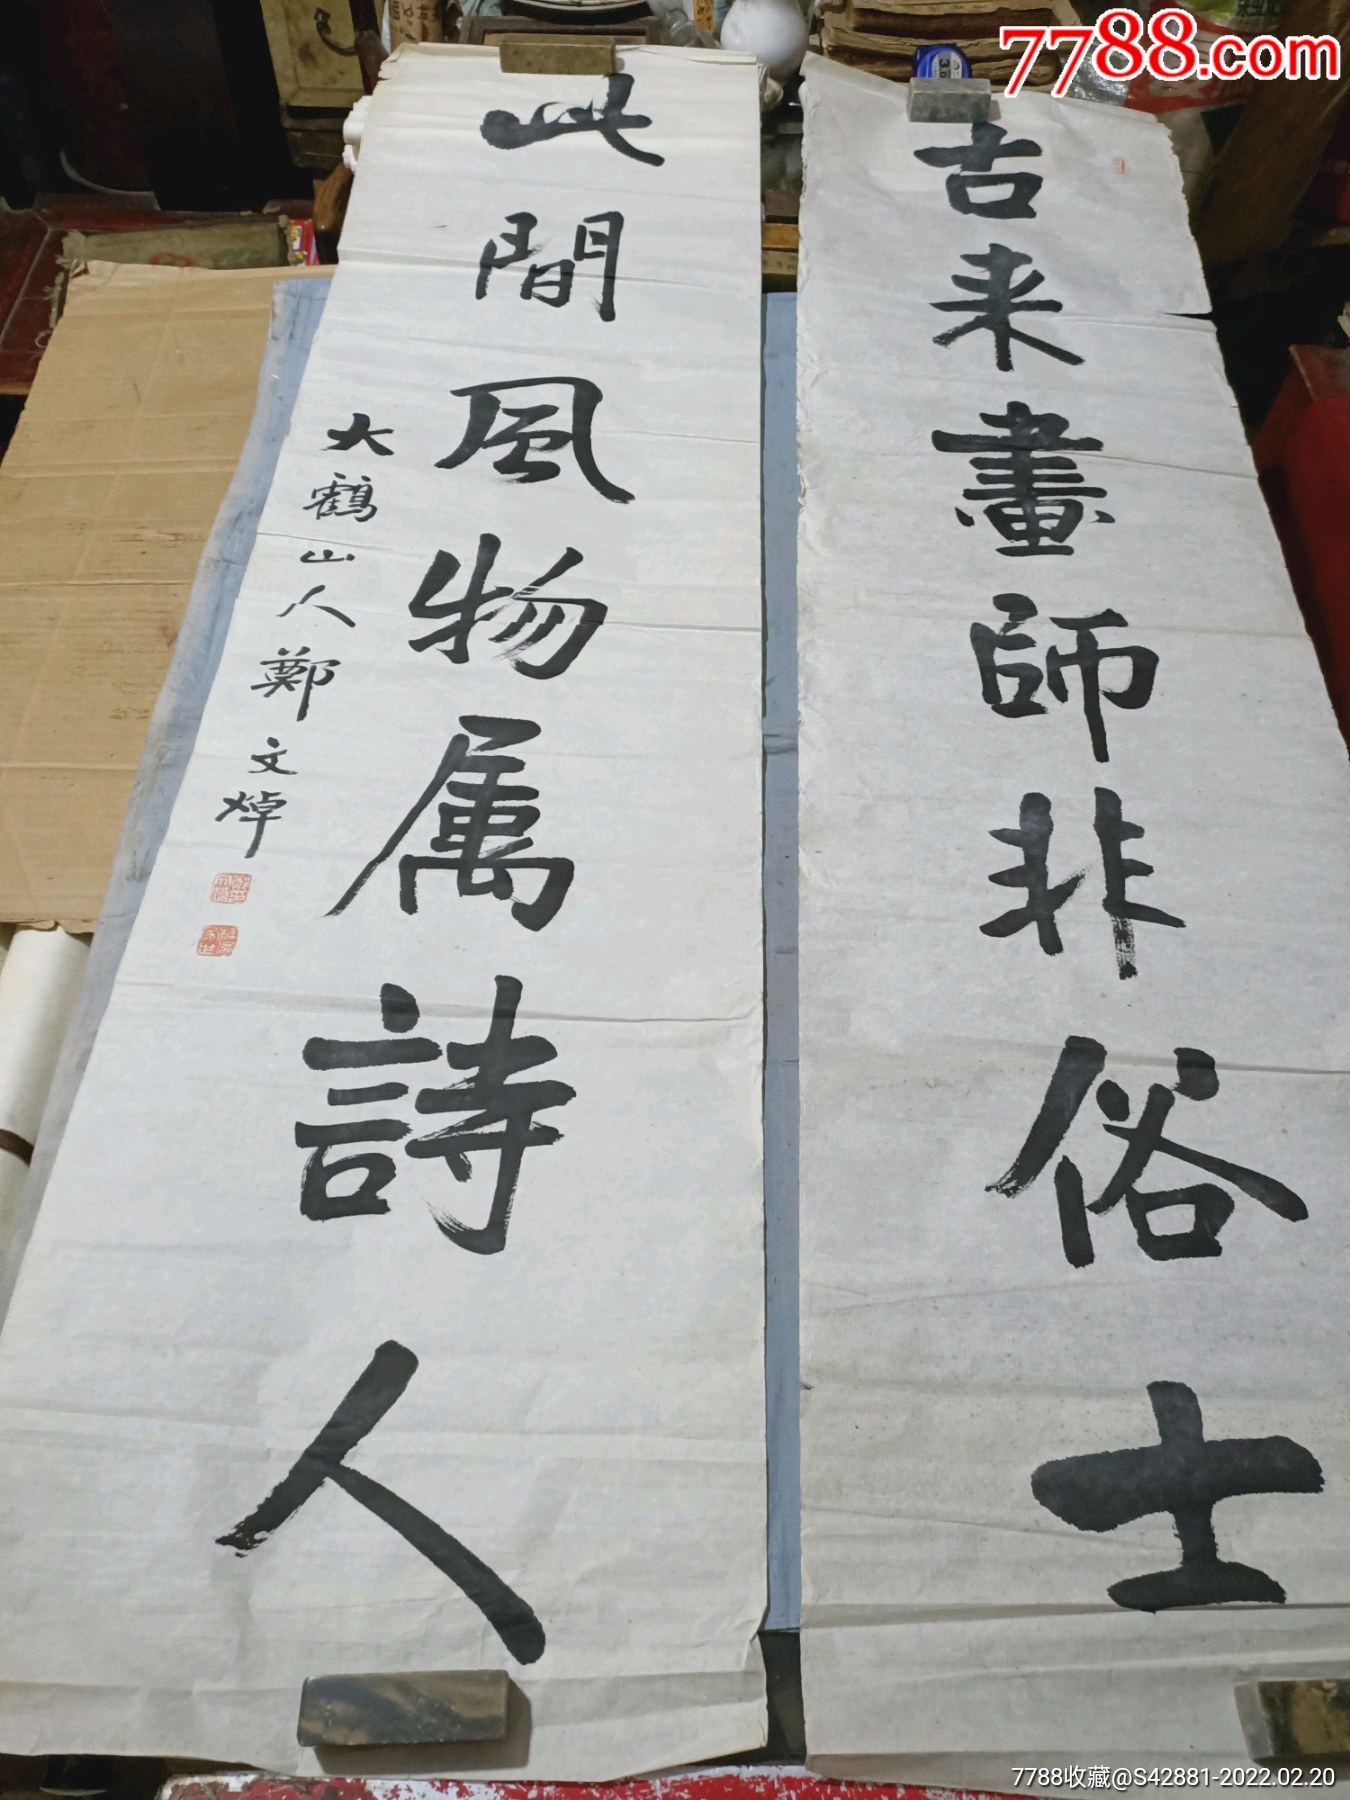 7788.com
古来畫師非俗士
此間風物属詩人
大鶴山人鄭文焯
7788收藏@S42881-2022.02.20